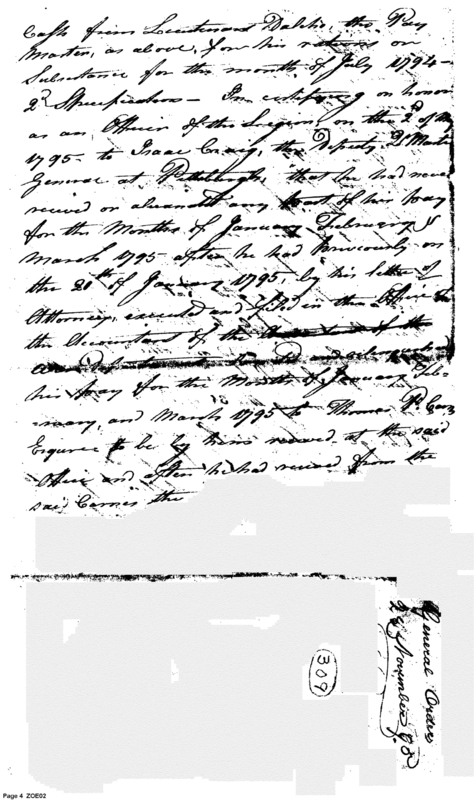 Cash from Lieutenant Dalch, the Pay
Master, as above, for his return on
Subsistance for the month of July 1794 –
2d Specification – In certifying on honor
as an Officer of the Legion, on the 2d of May
1795 to Isaac Craig, the Deputy Qr Master
General at Pittsburgh that he had never
received or alienated any part of his pay
for the Months of January February &
March 1795 after he had previously on
the 20th of January 1795, by his letter of
Attorney, executed and filed in the Office
the Accountant of the
his pay for the Months of January Feb=
=ruary, and March 1795 to Thomas P. Carnes
Esquire to be by him received, at the said
Office and after he had received from the
said Carnes the
General Orders
24 November 95.
309
Page 4 ZOE02